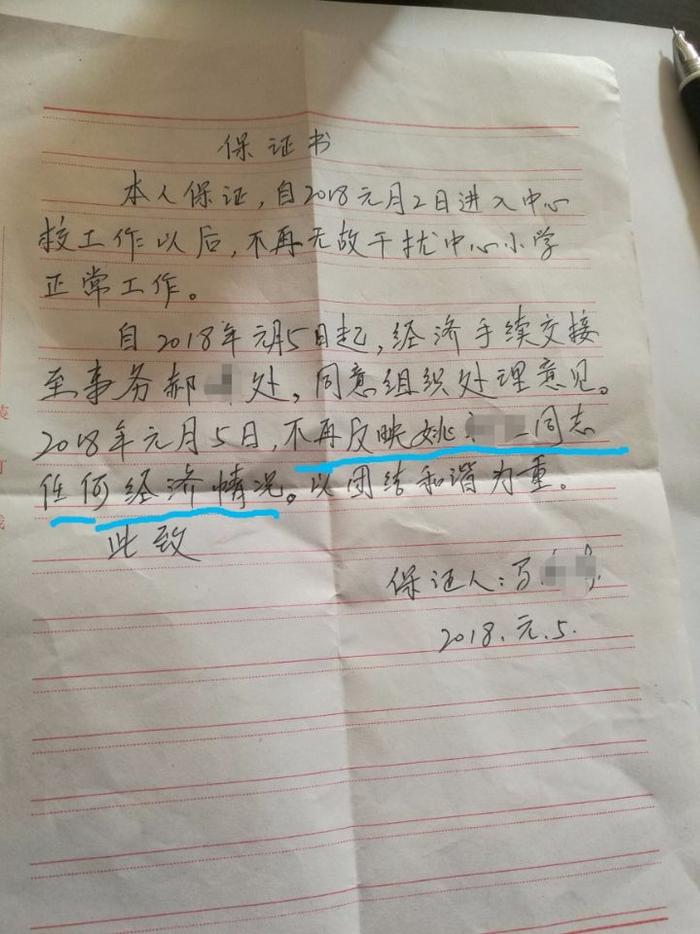 保证书
本人保证，自2018元月2日进入中心
校工作以后，不再无故干扰中心小学
正常工作。
自2018年元月5日起，经济手续交接
至事务郝处，同意组织处理意见。
2018年元月5日，不再反映姚同志
任何经济情况。以团结和谐为重。
此致
保证人：马
2018.元.5.